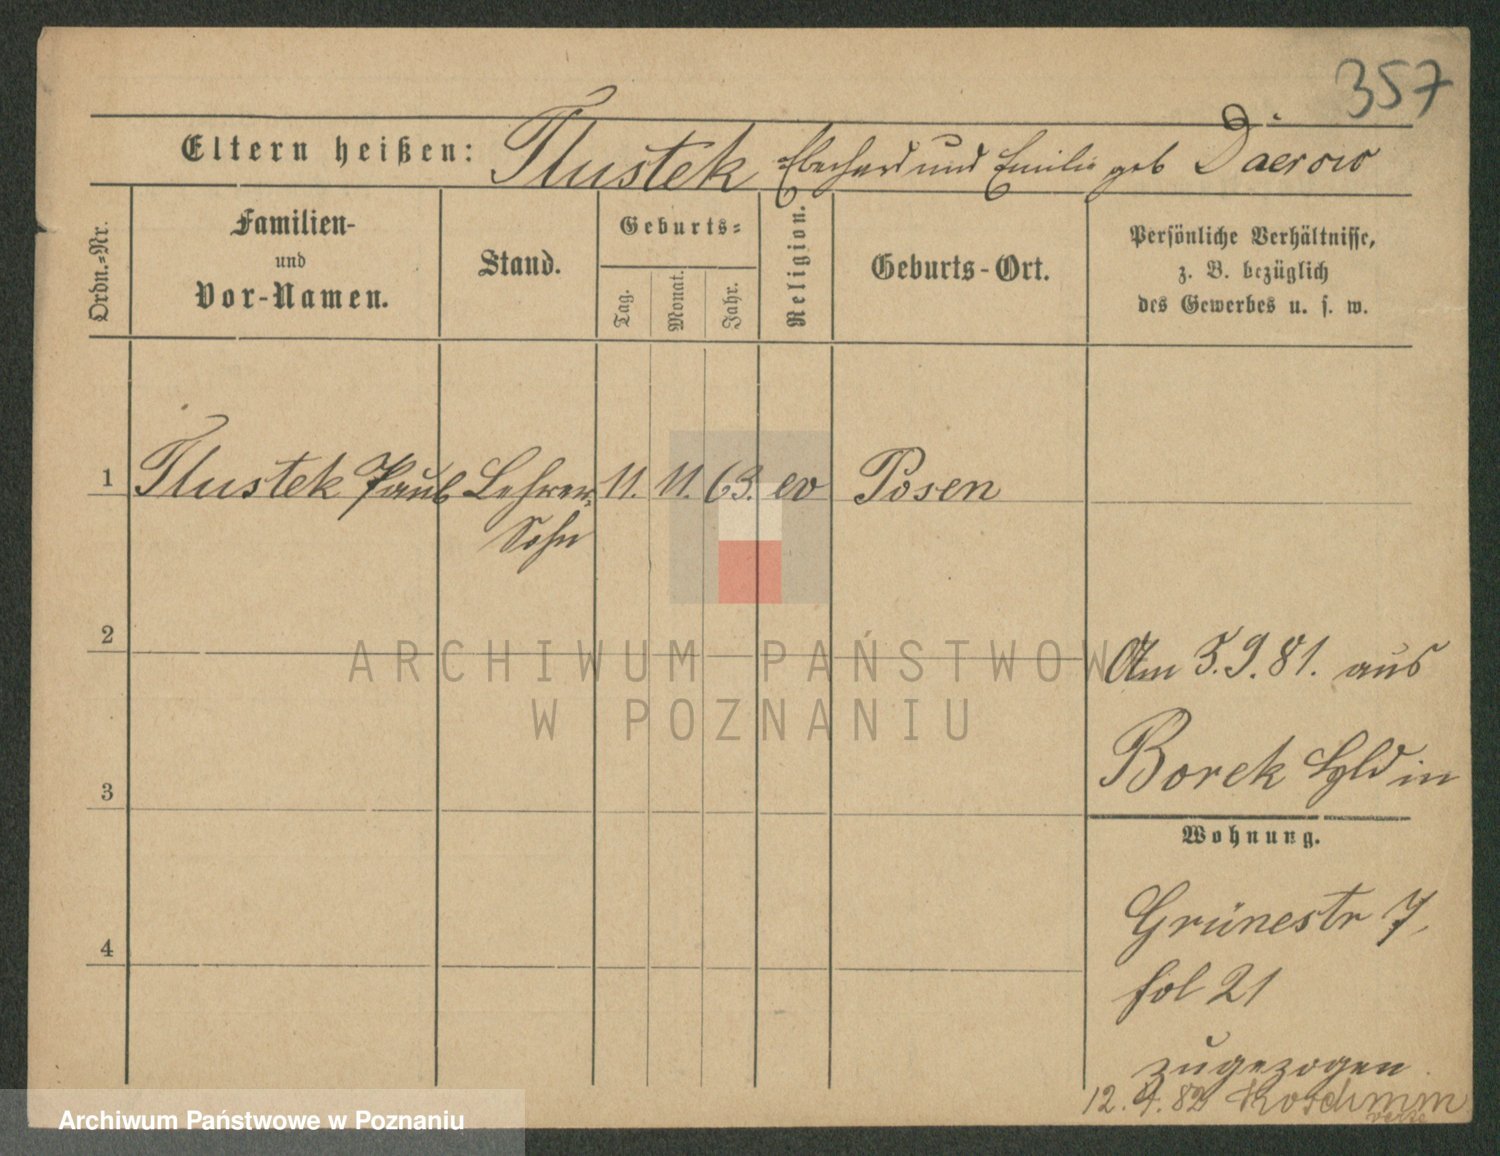 357
Eltern heißen: Tlustek Eberhard und Emilie geb Daerow
Ordn.-Nr.
Familien-
und
Vor-Namen.
Stand.
Geburts-
Tag.
Monat.
Jahr.
Religion.
Geburts-Ort.
Persönliche Verhältnisse,
z. B. bezüglich
des Gewerbes u. s. w.
1 Tlustek Paul Lehrer- 11. 11. 63. ev Posen
Sohn
2
ARCHIWUM PAŃSTWOW
W POZNANIU
Am 5.9.81. aus
Borek in
3
Wohnung.
Grünestr 7,
fol 21
4
zugezogen
12. 4. 82 Koschmin
verzo
Archiwum Państwowe w Poznaniu